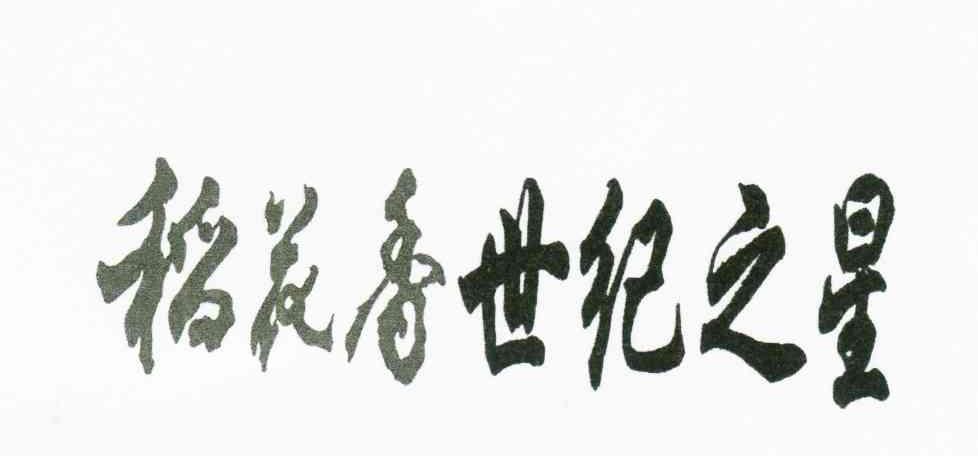 稻花香世纪之星